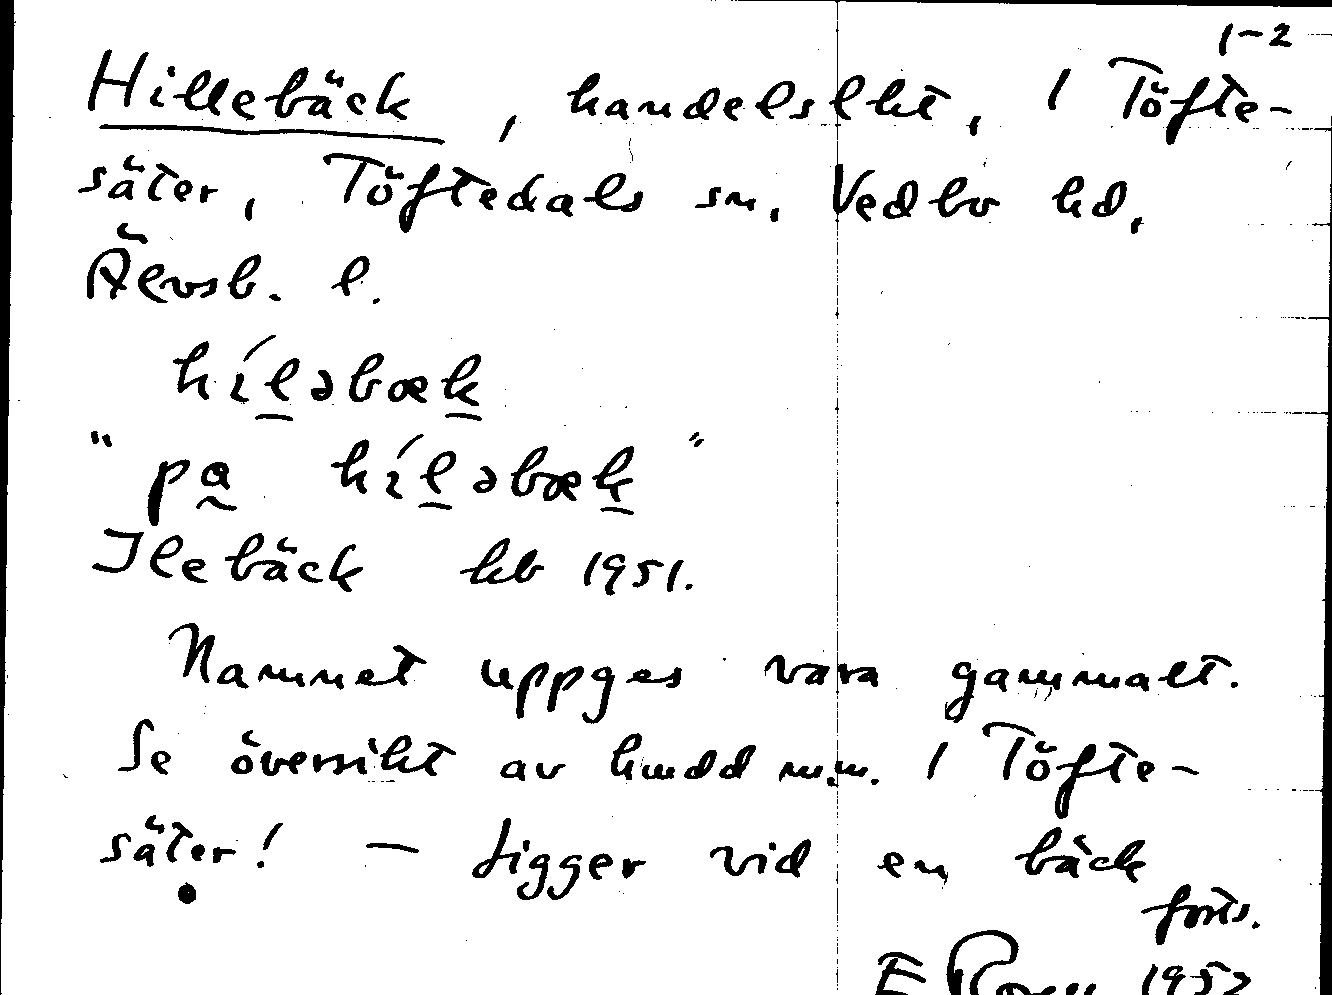 1-2
Hillebäck, handelslht, 1 Töfte-
säter, Töftedals sn, Vedbo hd,
Älvsb. l.
hílǝbæk
"pa hílǝbæk"
Ilebäck kb 1951.
Namnet uppges vara gammalt.
Se översikt av hmdd m.m. 1 Töfte-
säter! – Ligger vid en bäck
forts.
E Rosén 1952